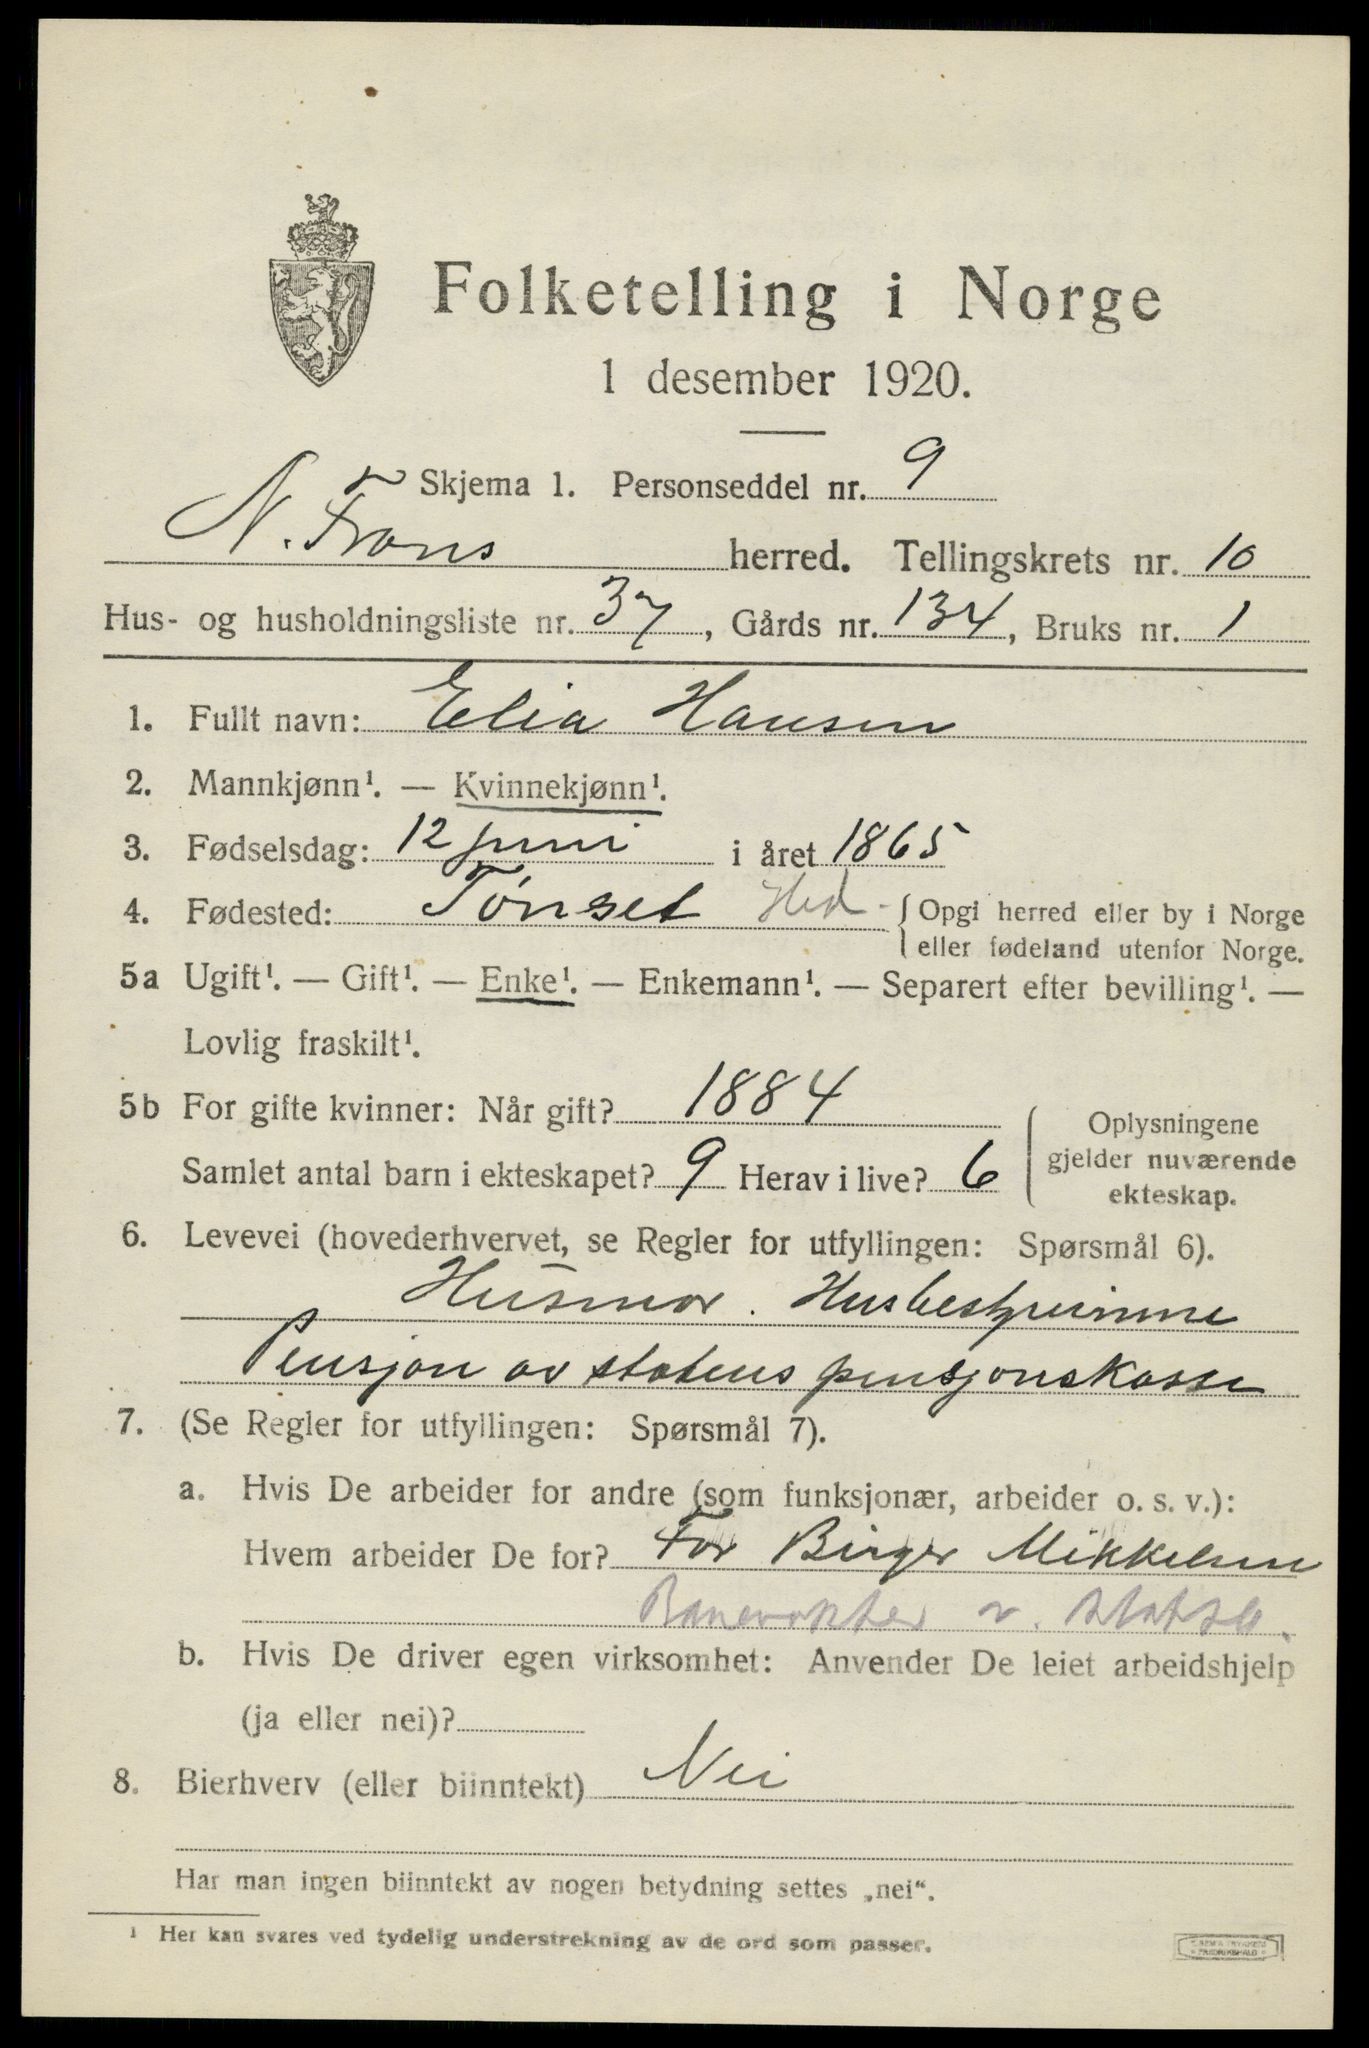 Folketelling i Norge
1 desember 1920.
Skjema 1. Personseddel nr. 9
N. Frons herred. Tellingskrets nr. 10
Hus- og husholdningsliste nr. 37, Gårds nr. 134, Bruks nr. 1
1. Fullt navn: Elia Hansen
2. Mannkjønn¹. — Kvinnekjønn¹.
3. Fødselsdag: 12 juni i året 1865
4. Fødested: Tønset Hed. { Opgi herred eller by i Norge
eller fødeland utenfor Norge.
5a Ugift¹. — Gift¹. — Enke¹. — Enkemann¹. — Separert efter bevilling¹. —
Lovlig fraskilt¹.
5b For gifte kvinner: Når gift? 1884
Samlet antal barn i ekteskapet? 9 Herav i live? 6
Oplysningene
gjelder nuværende
ekteskap.
6. Levevei (hovederhvervet, se Regler for utfyllingen: Spørsmål 6).
Husmor. Husbestyrinne
Pensjon av statens pensjonskasse
7. (Se Regler for utfyllingen: Spørsmål 7).
a. Hvis De arbeider for andre (som funksjonær, arbeider o. s. v.):
Hvem arbeider De for? For Birger Mikkelsen
Banevokter v. statsb.
b. Hvis De driver egen virksomhet: Anvender De leiet arbeidshjelp
(ja eller nei)?
8. Bierhverv (eller biinntekt) Nei
Har man ingen biinntekt av nogen betydning settes „nei“.
¹ Her kan svares ved tydelig understrekning av de ord som passer.
FREDRIKSHALD